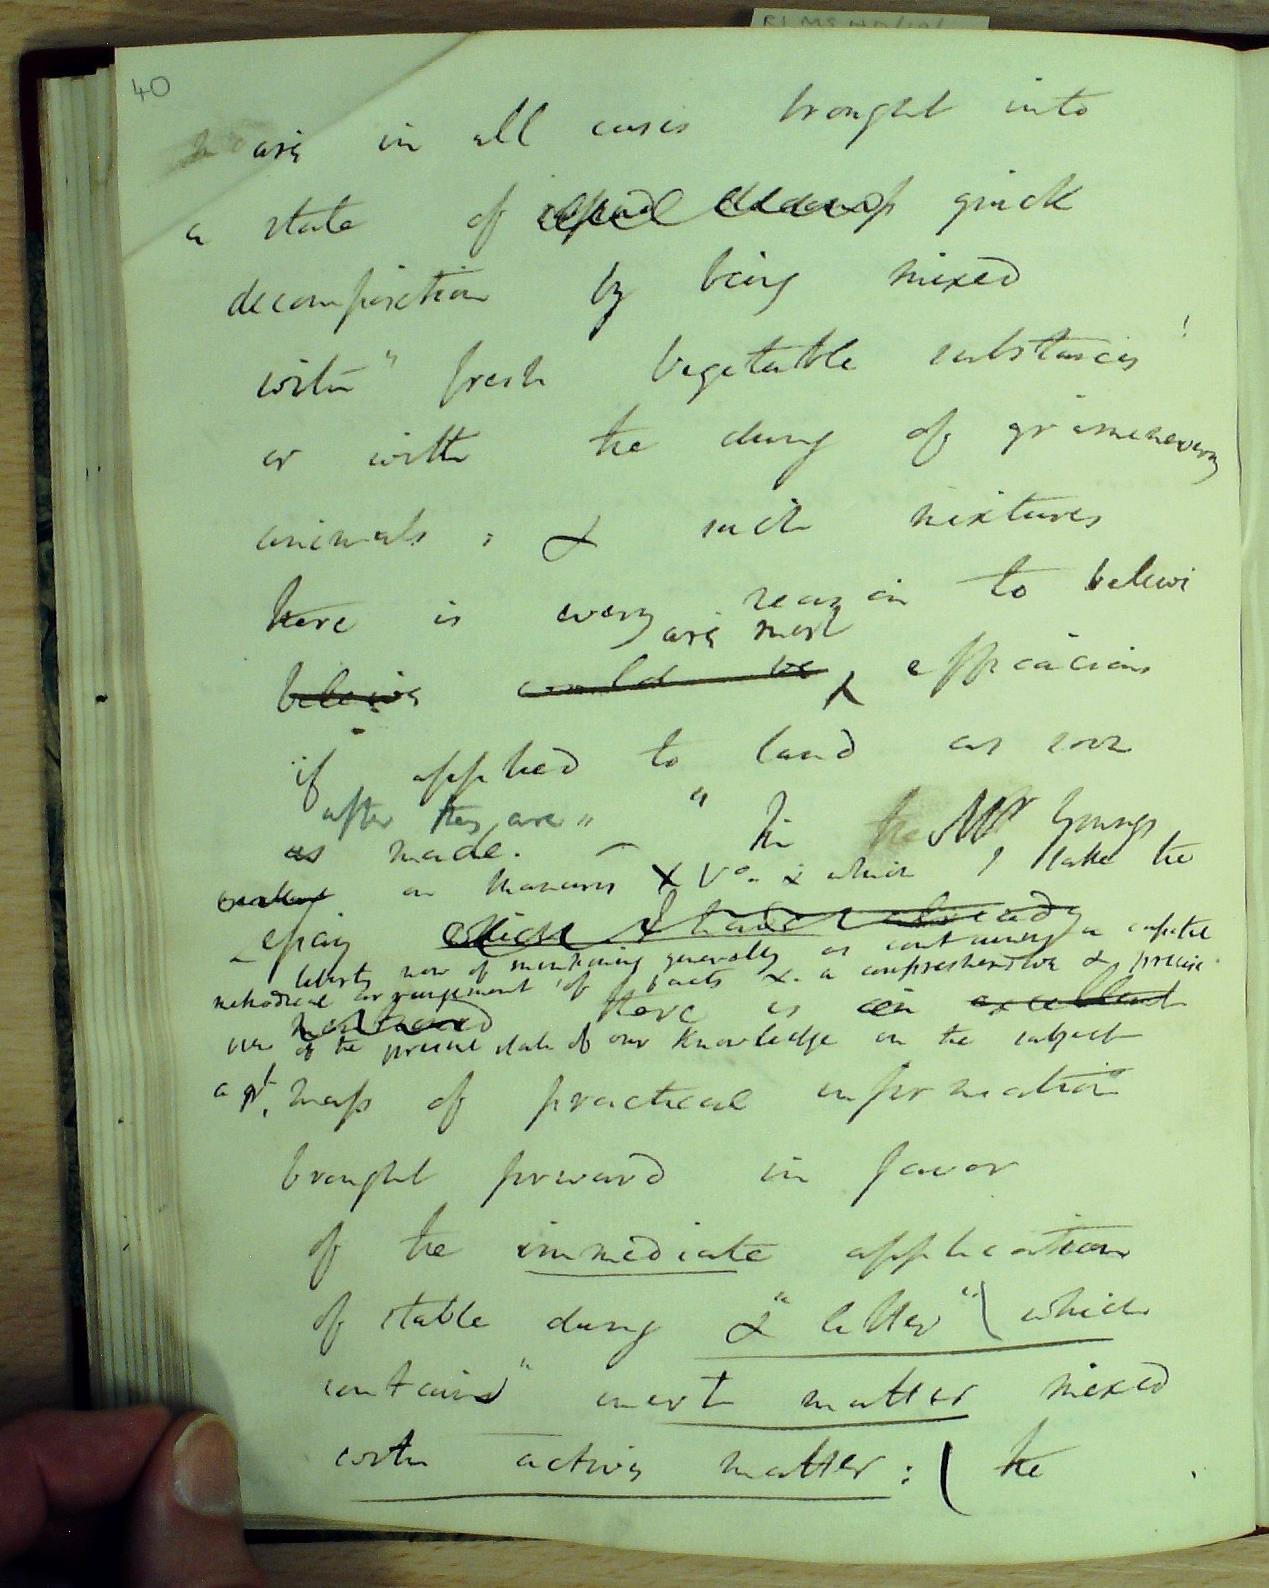 40
are in all cases brought into
a state of quick
decomposition by being mixed
with" fresh vegetable substances
or with the dung of
animals; & such mixtures
there is every reason to believe
are most
believe could be efficacious
if applied to land as soon
after they are"
as made. — " In the Mr Youngs
on Manures X Vo. & which I take the
essay which I have already
liberty now of mentioning generally as containing a
methodical arrangement of facts &. a comprehensive & precise
there is an excellent
view of the present state of our knowledge on the subject
a gt. mass of practical information
brought forward in favor
of the immediate application
of stable dung & "litter" ( which
contains" inert matter mixed
with active matter: ( the